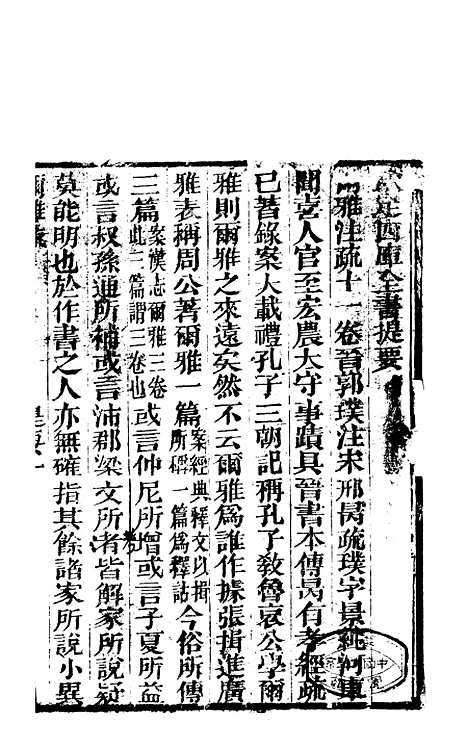 定四庫全書提要
爾雅注疏十一卷晉郭璞注宋邢昺疏璞字景純河東
聞喜人官至宏農太守事蹟具晉書本傳昺有孝經疏
已著錄案大戴禮孔子三朝記稱孔子教魯哀公學爾
雅則爾雅之來遠矣然不云爾雅為誰作據張揖進廣
雅表稱周公著爾雅一篇案經典釋文以揖所稱一篇為釋詁今俗所傳
三篇案漢志爾雅三卷此三篇謂三卷也或言仲尼所增或言子夏所益
或言叔孫通所補或言沛郡梁文所考皆解家所說疑
莫能明也於作書之人亦無確指其餘諸家所說小異
爾雅 提要 一